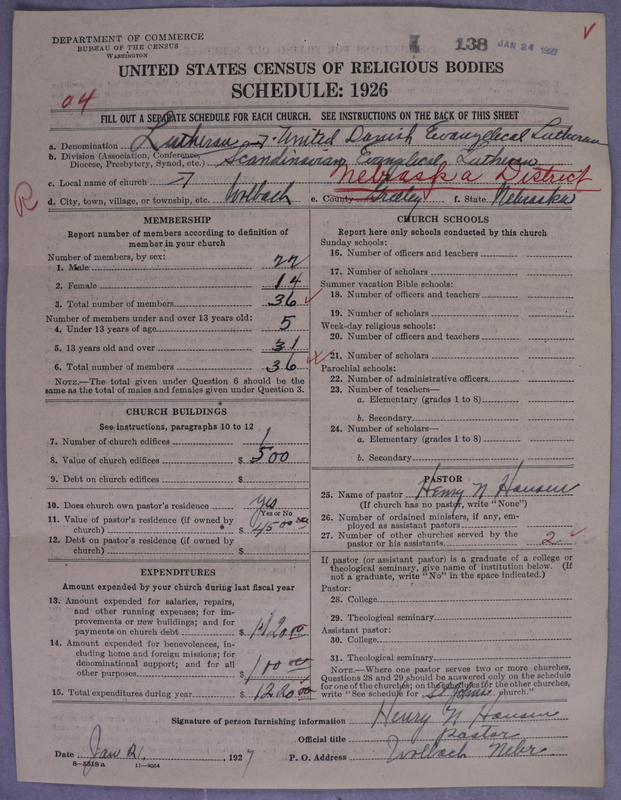 DEPARTMENT OF COMMERCE
BUREAU OF THE CENSUS
WASHINGTON
138 JAN 24
UNITED STATES CENSUS OF RELIGIOUS BODIES
SCHEDULE: 1926
04
FILL OUT A SEPARATE SCHEDULE FOR EACH CHURCH. SEE INSTRUCTIONS ON THE BACK OF THIS SHEET
a. Denomination Lutheran - United Danish Evangelical Lutheran
b. Division (Association, Conference, Diocese, Presbytery, Synod, etc.) Scandinavian Evanglecal Lutheran
Nebraska District
c. Local name of church
R
d. City, town, village, or township, etc. Wolbach e. County Greeley f. State Nebraska
MEMBERSHIP
Report number of members according to definition of
member in your church
Number of members, by sex:
1. Male 22
2. Female 14
3. Total number of members 36
Number of members under and over 13 years old:
4. Under 13 years of age 5
5. 13 years old and over 31
6. Total number of members 36
NOTE.—The total given under Question 6 should be the
same as the total of males and females given under Question 3.
CHURCH BUILDINGS
See instructions, paragraphs 10 to 12
7. Number of church edifices 1
8. Value of church edifices $ 500
9. Debt on church edifices $
10. Does church own pastor's residence yes
Yes or No
11. Value of pastor's residence (if owned by
church) $ 4500
12. Debt on pastor's residence (if owned by
church) $
EXPENDITURES
Amount expended by your church during last fiscal year
13. Amount expended for salaries, repairs,
and other running expenses; for im-
provements or new buildings; and for
payments on church debt $
14. Amount expended for benevolences, in-
cluding home and foreign missions; for
denominational support; and for all
other purposes $ 100 00
15. Total expenditures during year $
CHURCH SCHOOLS
Report here only schools conducted by this church
Sunday schools:
16. Number of officers and teachers
17. Number of scholars
Summer vacation Bible schools:
18. Number of officers and teachers
19. Number of scholars
Week-day religious schools:
20. Number of officers and teachers
21. Number of scholars
Parochial schools:
22. Number of administrative officers
23. Number of teachers—
a. Elementary (grades 1 to 8)
b. Secondary
24. Number of scholars—
a. Elementary (grades 1 to 8)
b. Secondary
PASTOR
25. Name of pastor Henry N Hansen
(If church has no pastor, write "None")
26. Number of ordained ministers, if any, em-
ployed as assistant pastors
27. Number of other churches served by the
pastor or his assistants 2
If pastor (or assistant pastor) is a graduate of a college or
theological seminary, give name of institution below. (If
not a graduate, write "No" in the space indicated.)
Pastor:
28. College
29. Theological seminary
Assistant pastor:
30. College
31. Theological seminary
NOTE.—Where one pastor serves two or more churches,
Questions 28 and 29 should be answered only on the schedule
for one of the churches; on the schedules for the other churches,
write "See schedule for St Johns church."
Signature of person furnishing information Henry N Hansen
Official title Pastor
Date Jan 21, 1927 P. O. Address Wolbach Nebr
8-5518a